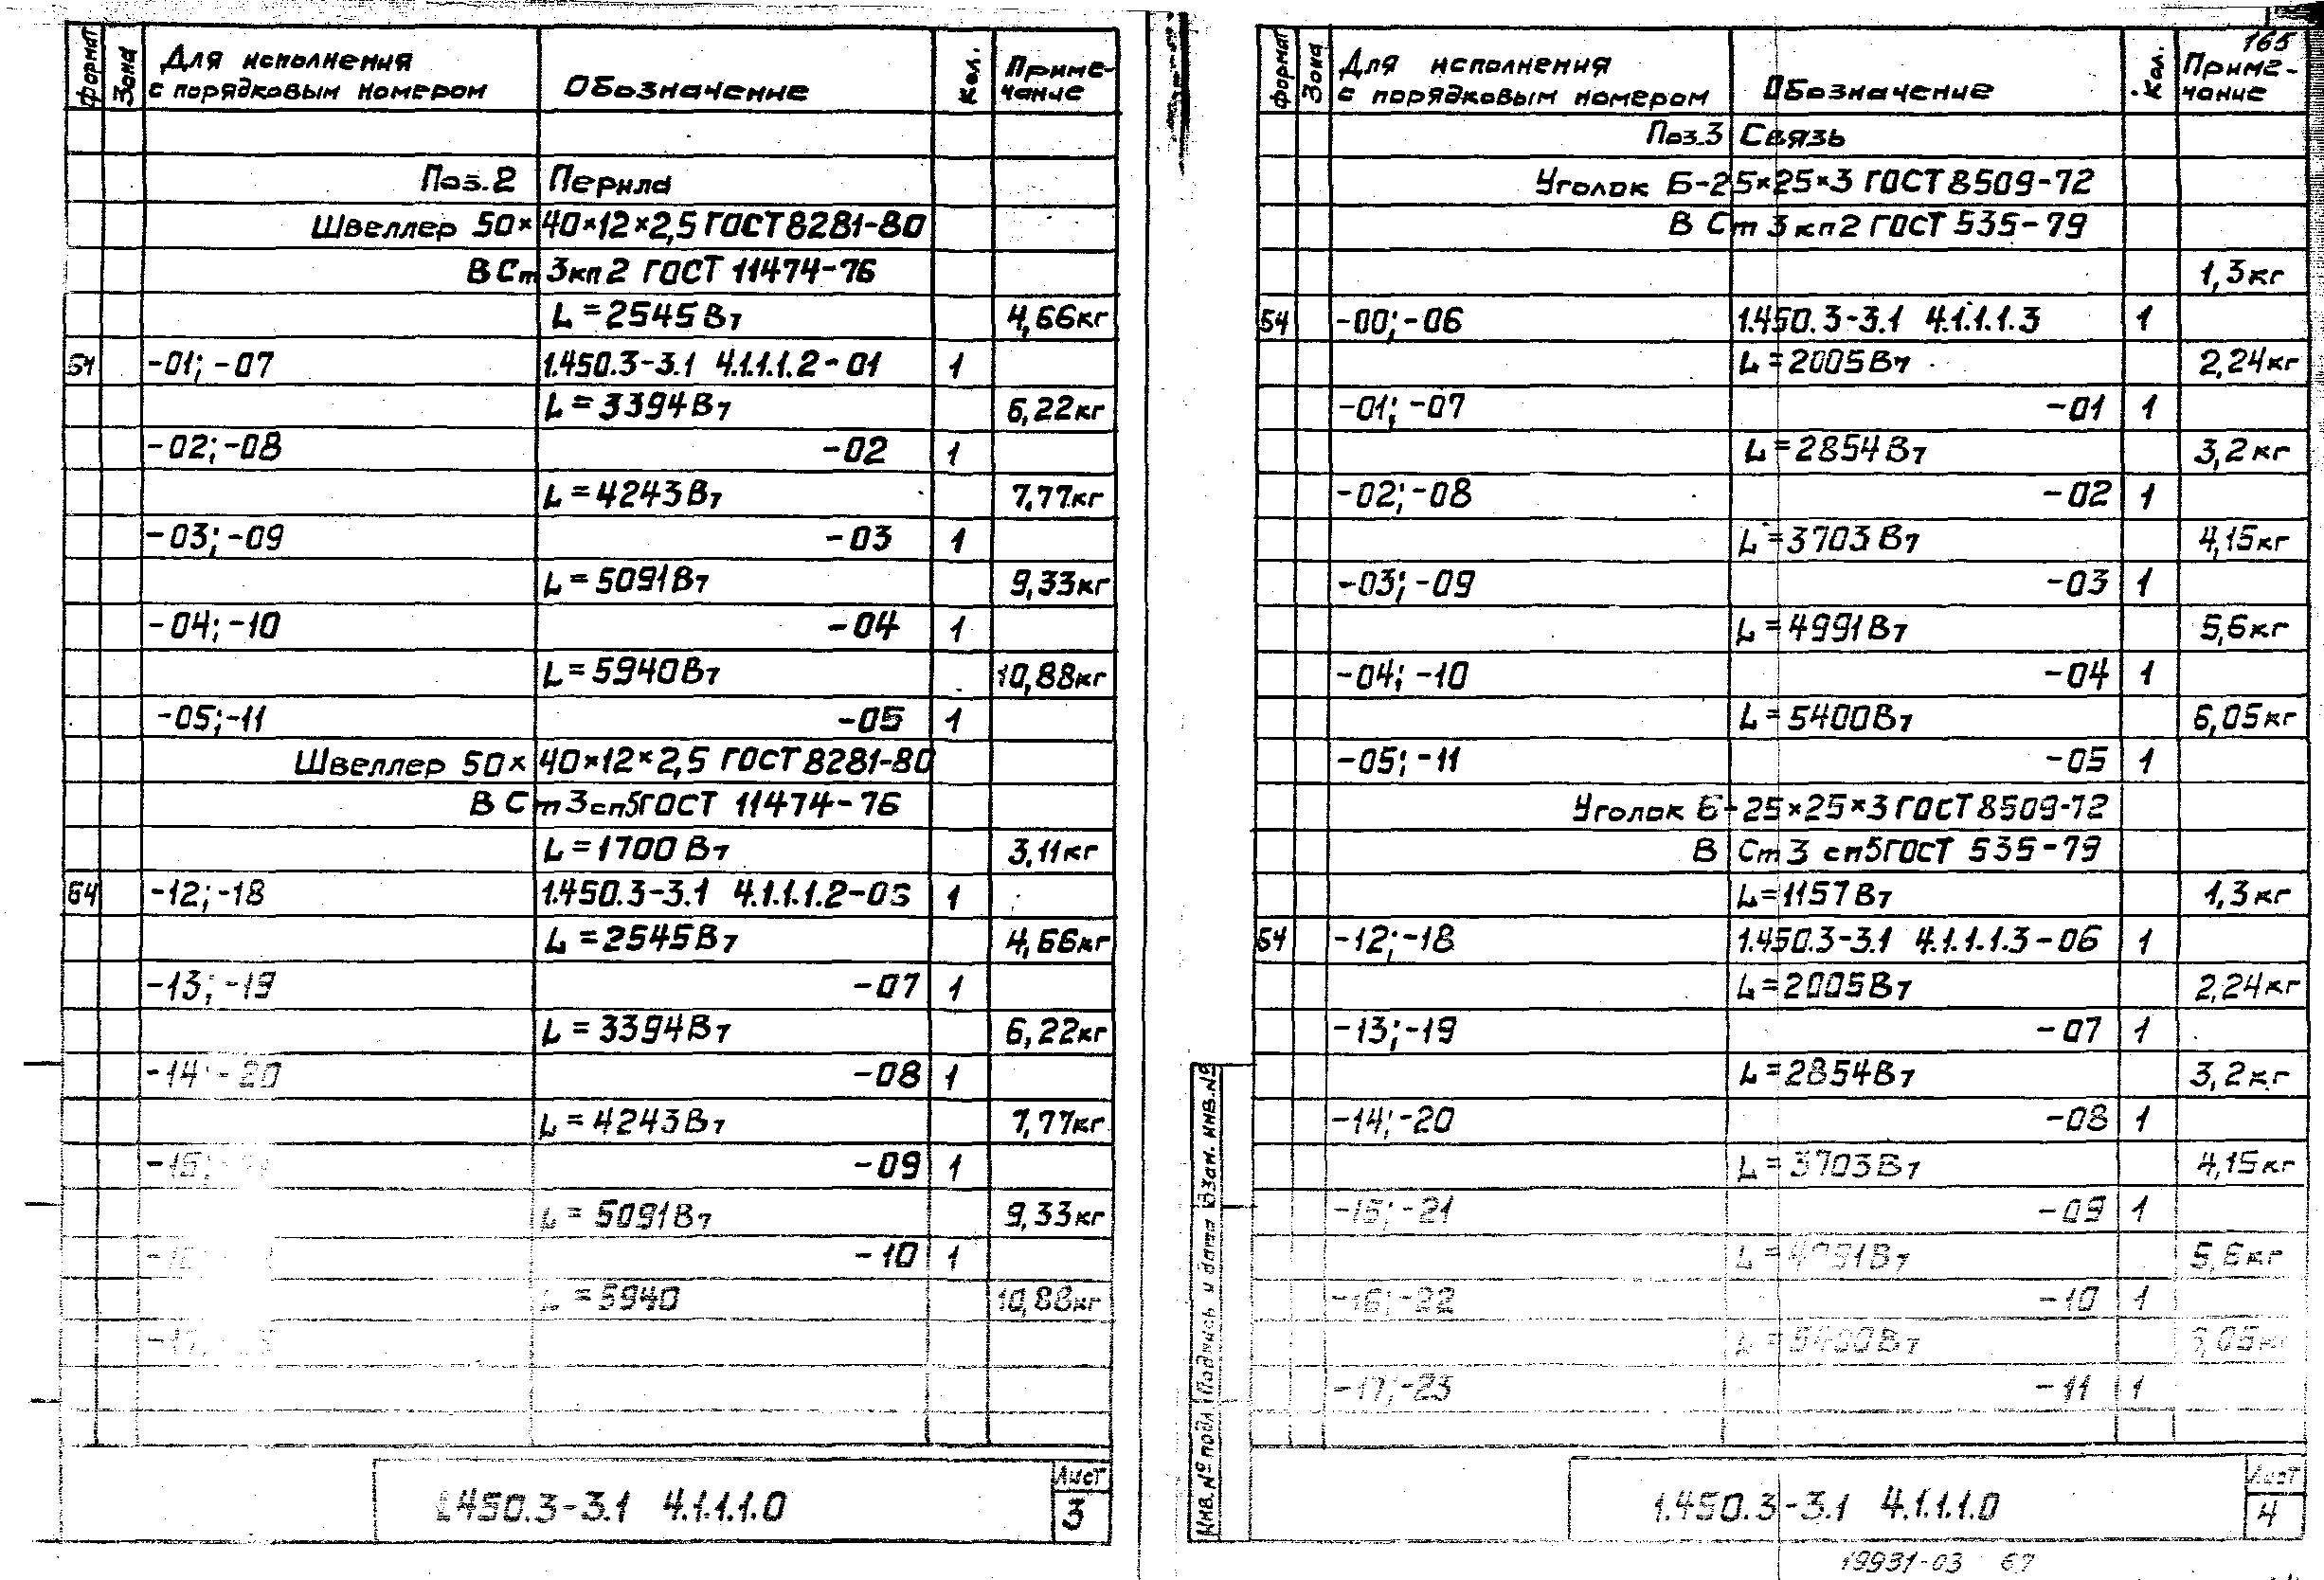 Формат Зона Для исполнения с порядковым номером Обозначение Кол. Примечание
Поз.2 Перила
Швеллер 50×40×12×2,5 ГОСТ 8281-80
В Ст 3кп2 ГОСТ 11474-76
L=2545 Вт 4,66кг
Б4 -01; -07 1.450.3-3.1 4.1.1.1.2-01 1
L=3394Вт 6,22кг
-02;-08 -02 1
L=4243Вт 7,77кг
-03;-09 -03 1
L=5091Вт 9,33кг
-04;-10 -04 1
L=5940Вт 10,88кг
-05;-11 -05 1
Швеллер 50×40×12×2,5 ГОСТ 8281-80
В Ст 3сп5 ГОСТ 11474-76
L=1700 Вт 3,11кг
Б4 -12;-18 1.450.3-3.1 4.1.1.1.2-06 1
L=2545Вт 4,66кг
-13;-19 -07 1
L=3394Вт 6,22кг
-14;-20 -08 1
L=4243Вт 7,77кг
-15; -09 1
L=5091Вт 9,33кг
-10 1
L=5940 10,88кг
-17;
1.450.3-3.1 4.1.1.1.0
Лист
3
165
Формат Зона Для исполнения с порядковым номером Обозначение Кол. Примечание
Поз.3 Связь
Уголок Б-25×25×3 ГОСТ 8509-72
В Ст 3кп2 ГОСТ 535-79
1,3кг
Б4 -00;-06 1.450.3-3.1 4.1.1.1.3 1
L=2005Вт 2,24кг
-01;-07 -01 1
L=2854Вт 3,2кг
-02;-08 -02 1
L=3703Вт 4,15кг
-03;-09 -03 1
L=4991Вт 5,6кг
-04;-10 -04 1
L=5400Вт 6,05кг
-05;-11 -05 1
Уголок Б-25×25×3 ГОСТ 8509-72
В Ст3 сп5 ГОСТ 535-79
L=1157Вт 1,3кг
Б4 -12;-18 1.450.3-3.1 4.1.1.1.3-06 1
L=2005Вт 2,24кг
-13;-19 -07 1
L=2854Вт 3,2кг
-14;-20 -08 1
L=3703Вт 4,15кг
-15;-21 -09 1
L=4991Вт 5,6кг
-16;-22 -10 1
L=5400Вт 6,05кг
-17;-23 -11 1
Инв.№ подл. Подпись и дата Взам. инв.№
1.450.3-3.1 4.1.1.1.0
Лист
4
19931-03 67